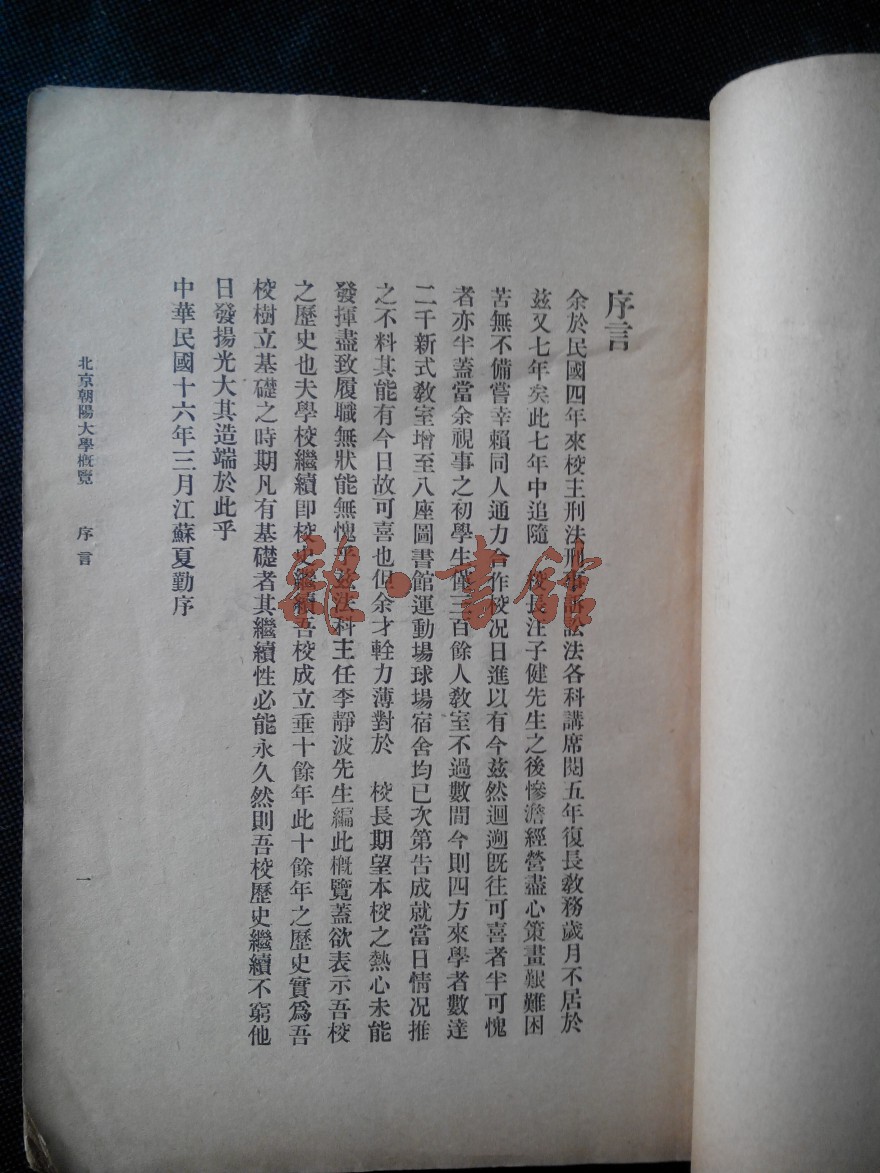 序言
余於民國四年來校主刑法刑事訴訟法各科講席閱五年復長教務歲月不居於
茲又七年矣此七年中追隨 校長汪子健先生之後慘澹經營盡心策畫艱難困
苦無不備嘗幸賴同人通力合作校况日進以有今茲然迴遡旣往可喜者半可愧
者亦半蓋當余視事之初學生僅三百餘人敎室不過數間今則四方來學者數達
二千新式敎室增至八座圖書館運動場球場宿舍均已次第吿成就當日情况推
之不料其能有今日故可喜也但余才輇力薄對於 校長期望本校之熱心未能
發揮盡致履職無狀能無愧乎茲法科主任李靜波先生編此槪覽蓋欲表示吾校
之歷史也夫學校繼續卽校史繼續吾校成立垂十餘年此十餘年之歷史實爲吾
校樹立基礎之時期凡有基礎者其繼續性必能永久然則吾校歷史繼續不窮他
日發揚光大其造端於此乎
中華民國十六年三月江蘇夏勤序
北京朝陽大學槪覽 序言 一
雜·書館